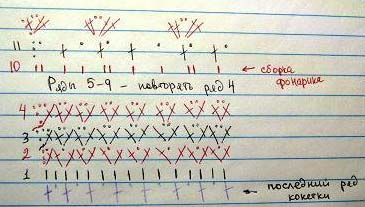 11
10
← сборка
фонарика
Ряды 5-9 - повторять ряд 4
4
3
2
1
← последний ряд
кокетки